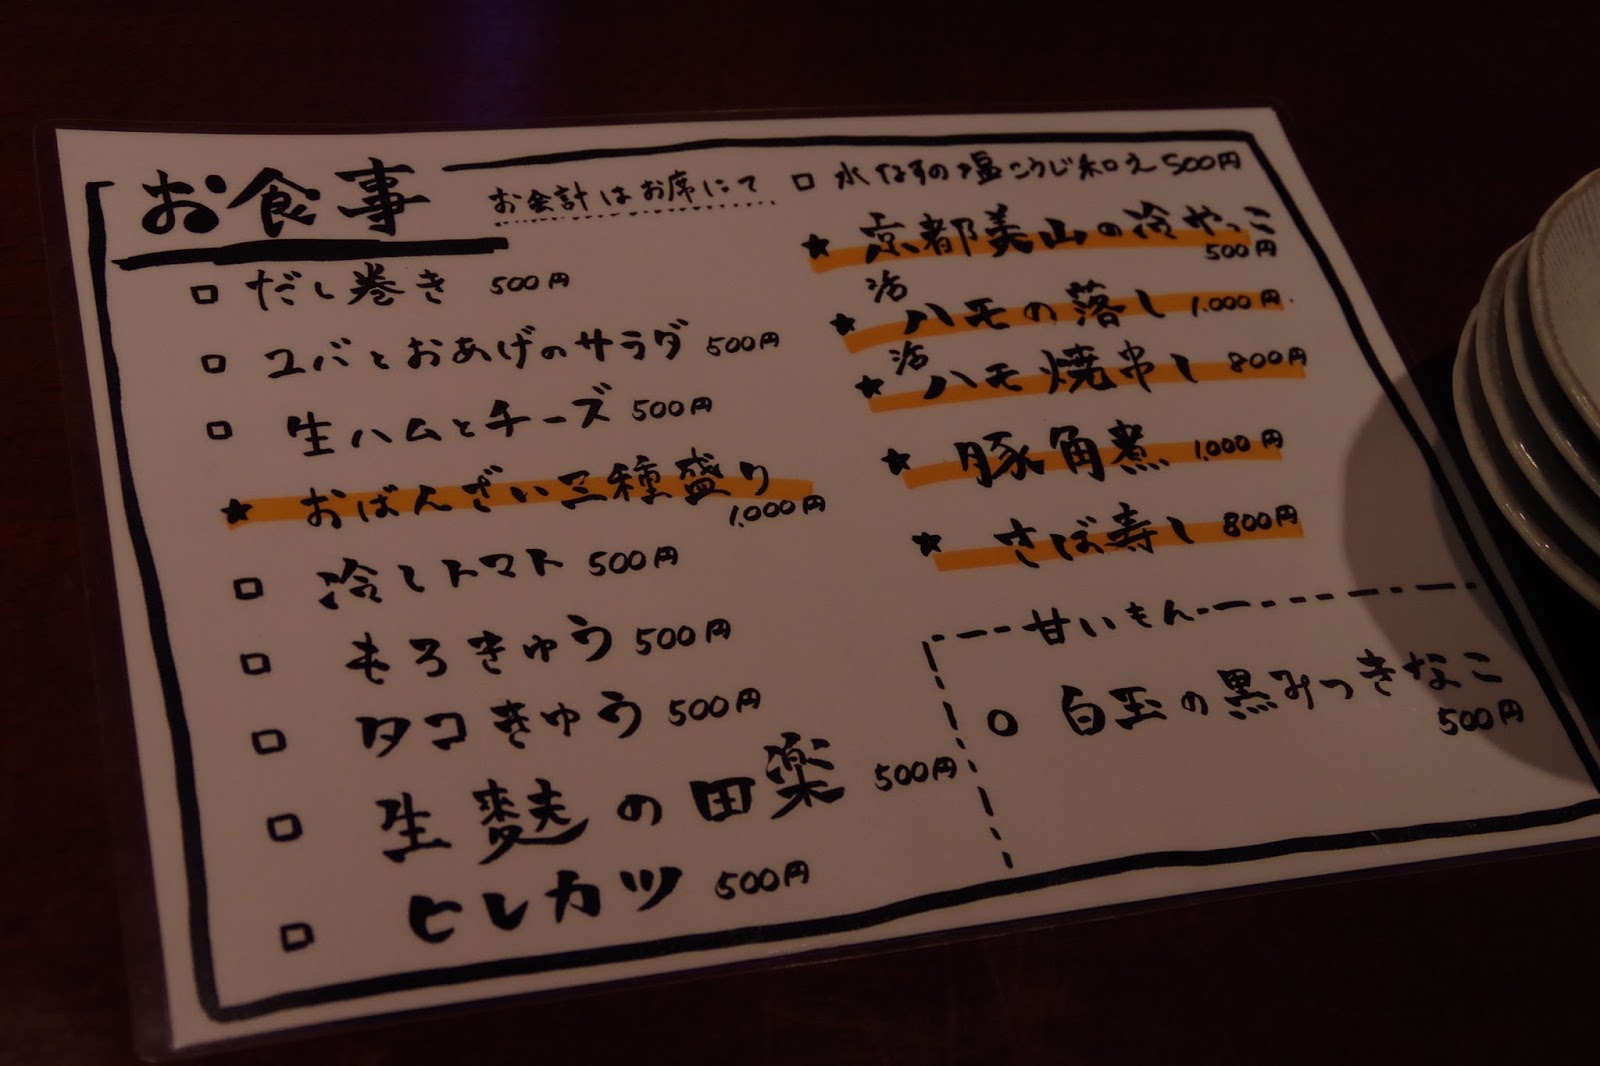 お食事
お会計はお席にて
□ だし巻き 500円
□ ユバとおあげのサラダ 500円
□ 生ハムとチーズ 500円
★ おばんざい三種盛り
1,000円
□ 冷しトマト 500円
□ もろきゅう 500円
□ タコきゅう 500円
□ 生麩の田楽 500円
□ ヒレカツ 500円
□ 水なすの塩こうじ和え 500円
★ 京都美山の冷やっこ
500円
★ 活ハモの落し 1,000円
★ 活ハモ焼串し 800円
★ 豚角煮 1,000円
★ さば寿し 800円
甘いもん
○ 白玉の黒みつきなこ
500円